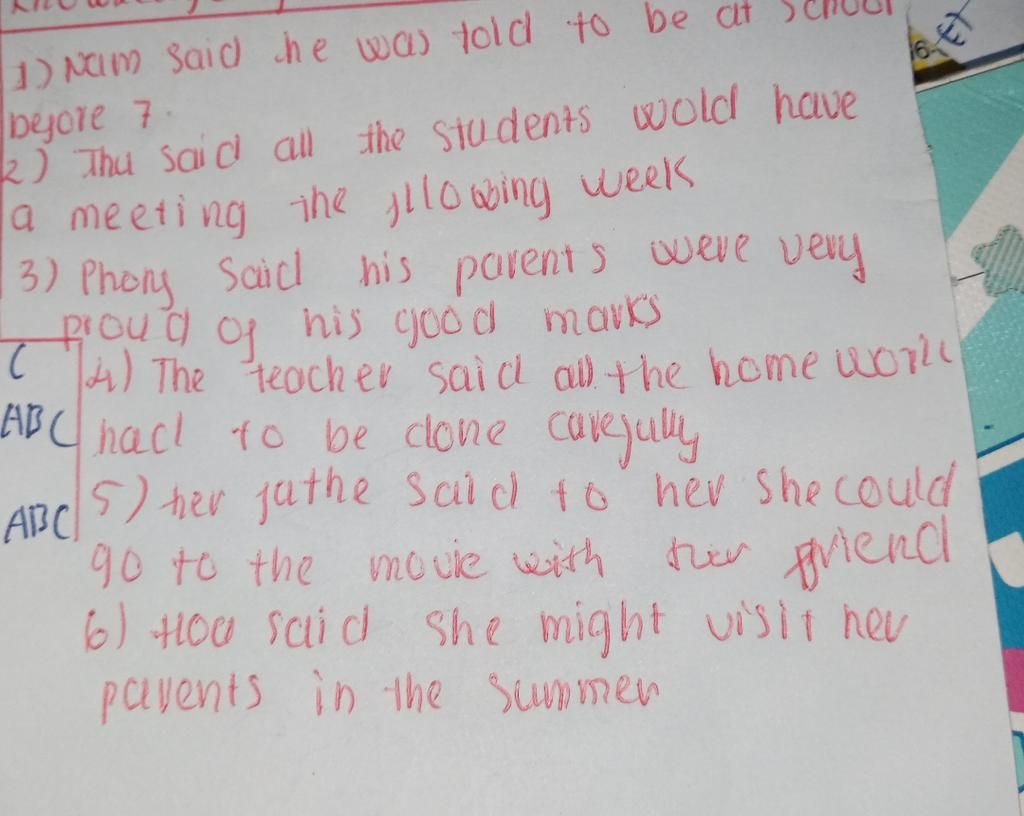 1) Nam said he was told to be at school
before 7.
2) Thu said all the students wold have
a meeting the fllowing week
3) Phong said his parents were very
proud of his good marks
C
4) The teacher said all the home work
ABC
had to be done carefully
ABC
5) her fathe said to her she could
go to the movie with her friend
6) Hoa said she might visit her
parents in the summer